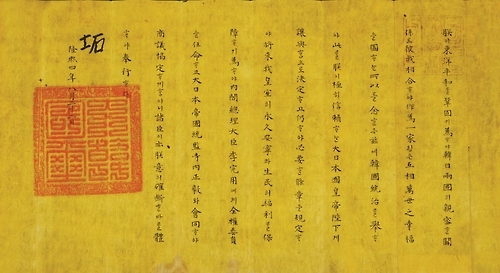 朕이東洋平和를鞏固히爲ᄒᆞ야韓日兩國의親密ᄒᆞᆫ關
係로彼我相合ᄒᆞ야作爲一家ᄒᆞᆷ은互相萬世之幸福
을圖ᄒᆞᄂᆞᆫ所以로念ᄒᆞᆫ즉玆에韓國統治를擧ᄒᆞ
야此를朕이極히信賴ᄒᆞᄂᆞᆫ大日本國皇帝陛下게
讓與ᄒᆞᆷ으로決定ᄒᆞ고仍ᄒᆞ야必要ᄒᆞᆫ條章을規定ᄒᆞ
야將來我皇室의永久安寧과生民의福利를保
障ᄒᆞ기爲ᄒᆞ야內閣總理大臣李完用에게全權委員
을任命ᄒᆞ고大日本帝國統監寺內正毅와會同ᄒᆞ야
商議協定ᄒᆞ게ᄒᆞ노니諸臣이亦朕意의確斷ᄒᆞᆫ바를體
ᄒᆞ야奉行ᄒᆞ라
坧
隆熙四年八月二十二日